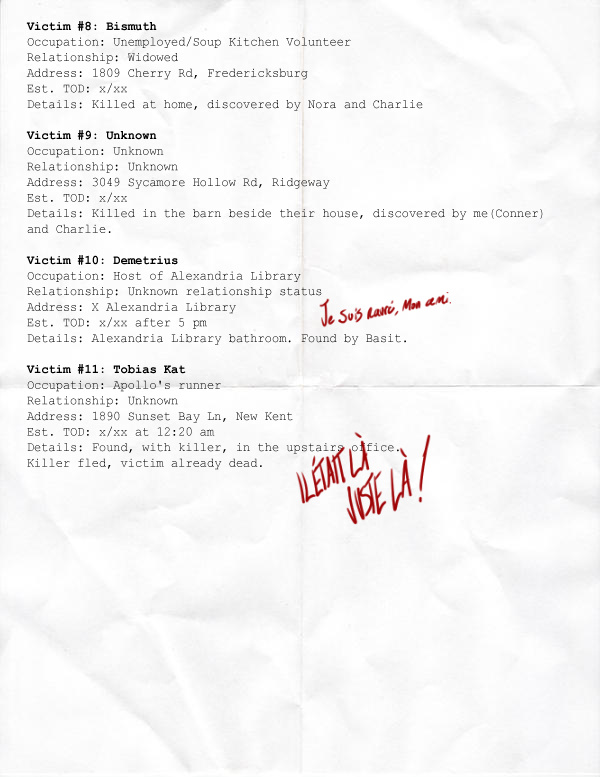 Victim #8: Bismuth
Occupation: Unemployed/Soup Kitchen Volunteer
Relationship: Widowed
Address: 1809 Cherry Rd, Fredericksburg
Est. TOD: x/xx
Details: Killed at home, discovered by Nora and Charlie
Victim #9: Unknown
Occupation: Unknown
Relationship: Unknown
Address: 3049 Sycamore Hollow Rd, Ridgeway
Est. TOD: x/xx
Details: Killed in the barn beside their house, discovered by me(Conner)
and Charlie.
Victim #10: Demetrius
Occupation: Host of Alexandria Library
Relationship: Unknown relationship status
Address: X Alexandria Library
Je suis navré, Mon ami.
Est. TOD: x/xx after 5 pm
Details: Alexandria Library bathroom. Found by Basit.
Victim #11: Tobias Kat
Occupation: Apollo's runner
Relationship: Unknown
Address: 1890 Sunset Bay Ln, New Kent
Est. TOD: x/xx at 12:20 am
Details: Found, with killer, in the upstairs office.
Killer fled, victim already dead.
IL ÉTAIT LÀ
JUSTE LÀ!